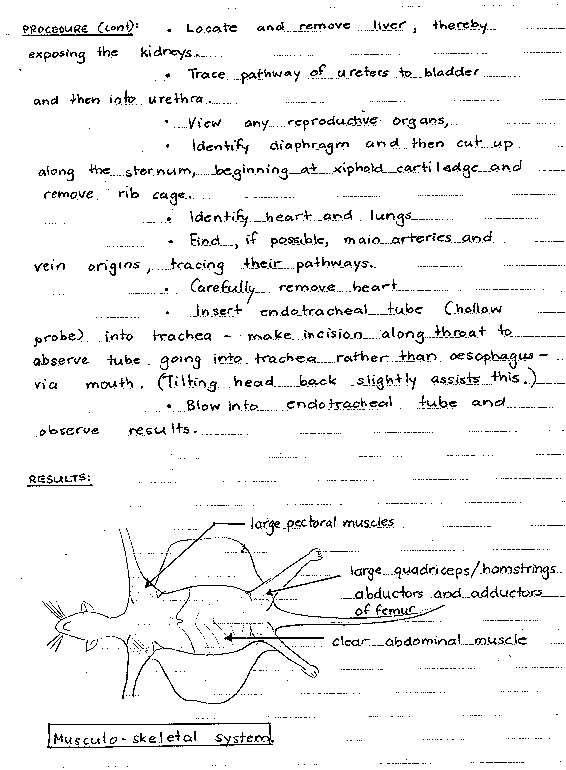 PROCEDURE (cont): • Locate and remove liver, thereby
exposing the kidneys.
• Trace pathway of ureters to bladder
and then into urethra.
• View any reproductive organs,
• Identify diaphragm and then cut up
along the sternum, beginning at xiphoid cartiledge and
remove rib cage.
• Identify heart and lungs
• Find, if possible, main arteries and
vein origins, tracing their pathways.
• Carefully remove heart
• Insert endotracheal tube (hollow
probe) into trachea - make incision along throat to
observe tube going into trachea rather than oesophagus -
via mouth. (Tilting head back slightly assists this.)
• Blow into endotracheal tube and
observe results.
RESULTS:
large pectoral muscles
large quadriceps/hamstrings
abductors and adductors
of femur
clear abdominal muscle
Musculo-skeletal system.